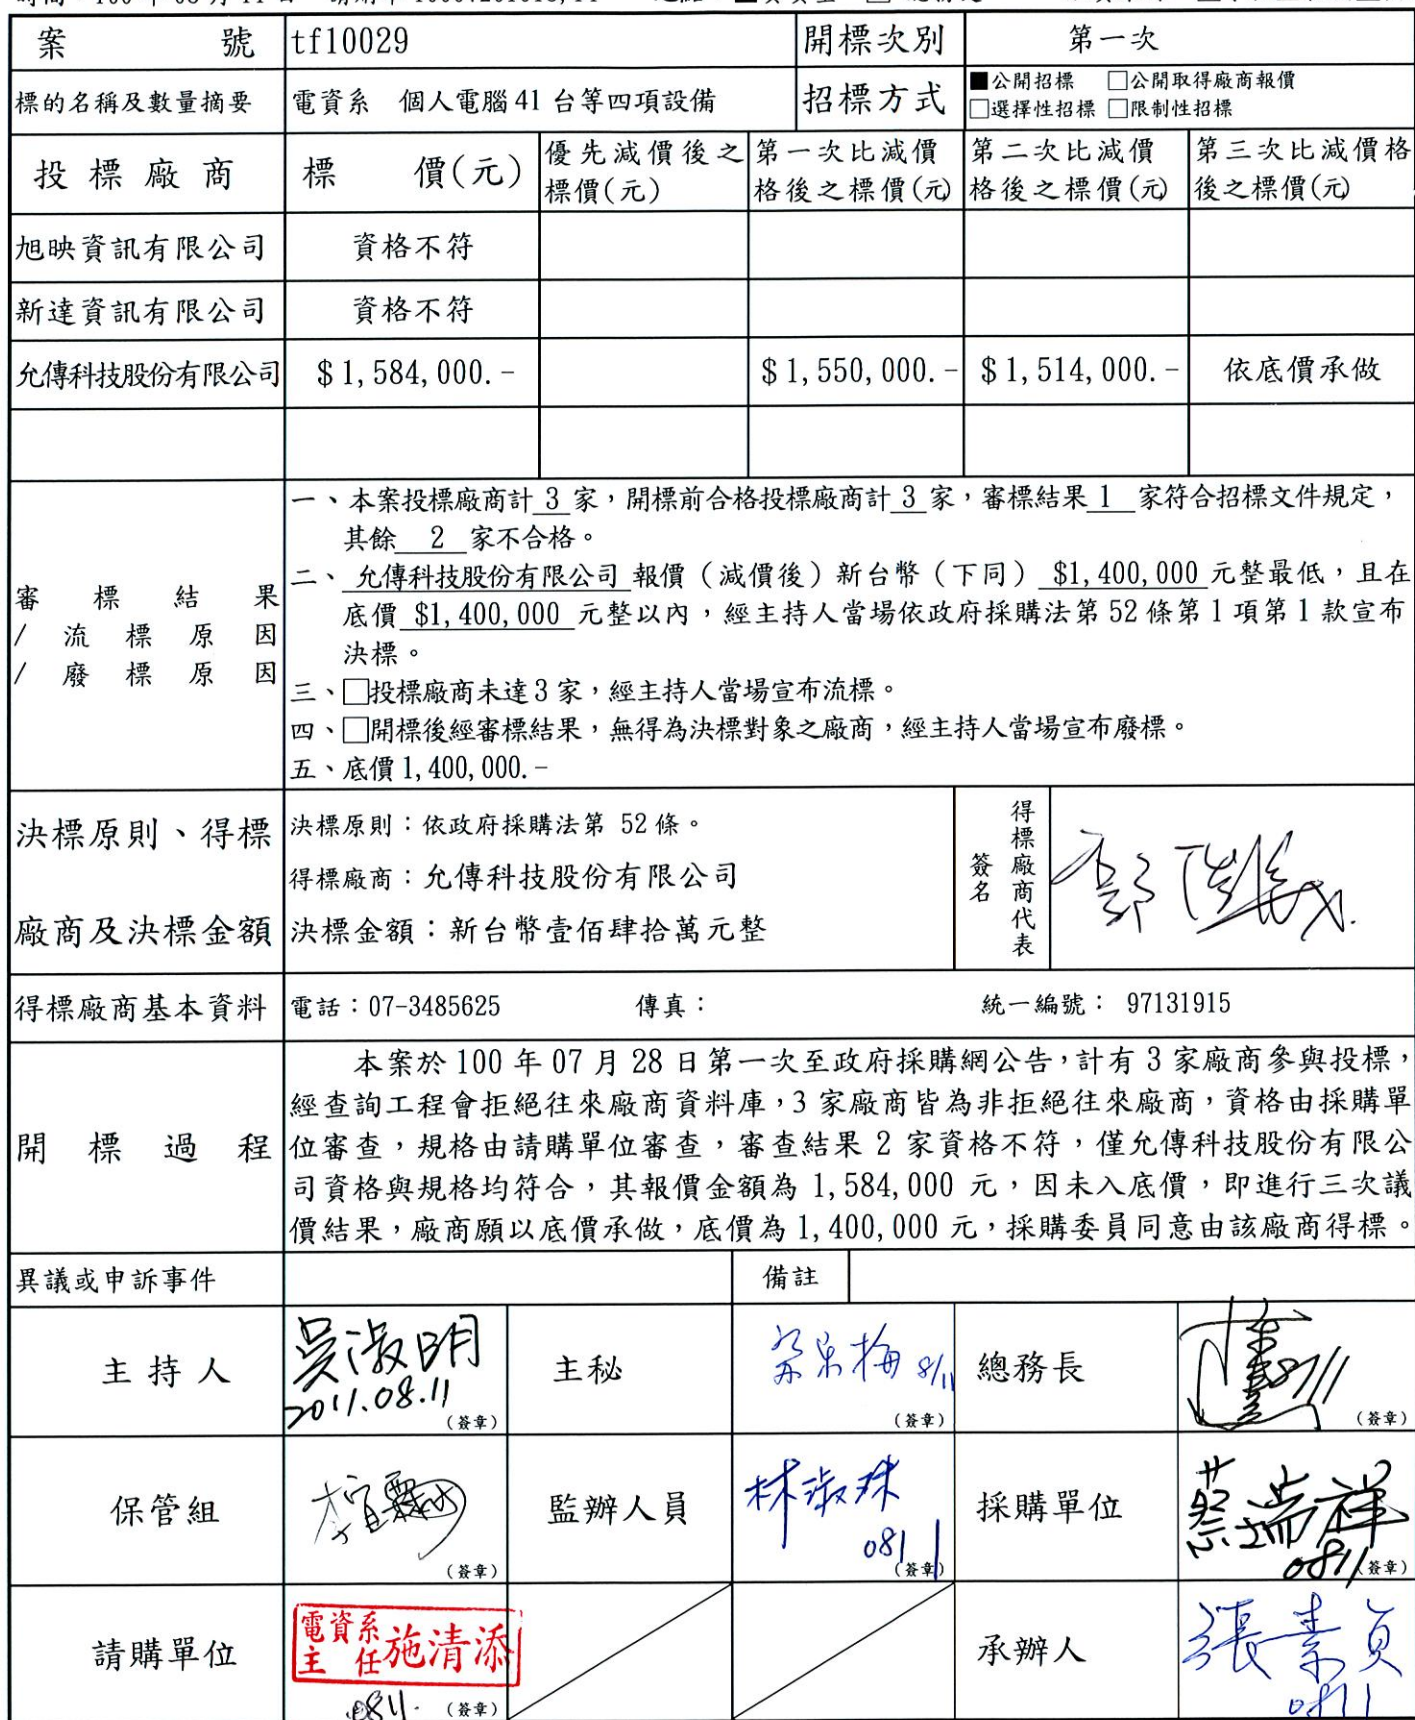 案 號 tf10029 開標次別 第一次
標的名稱及數量摘要 電資系 個人電腦41台等四項設備 招標方式 ■公開招標 □公開取得廠商報價
□選擇性招標 □限制性招標
投標廠商 標 價(元) 優先減價後之標價(元) 第一次比減價格後之標價(元) 第二次比減價格後之標價(元) 第三次比減價格後之標價(元)
旭映資訊有限公司 資格不符
新達資訊有限公司 資格不符
允傳科技股份有限公司 $1,584,000.- $1,550,000.- $1,514,000.- 依底價承做
審標結果
/流標原因
/廢標原因
一、本案投標廠商計 3 家，開標前合格投標廠商計 3 家，審標結果 1 家符合招標文件規定，
其餘 2 家不合格。
二、 允傳科技股份有限公司 報價（減價後）新台幣（下同） $1,400,000 元整最低，且在
底價 $1,400,000 元整以內，經主持人當場依政府採購法第52條第1項第1款宣布
決標。
三、□投標廠商未達3家，經主持人當場宣布流標。
四、□開標後經審標結果，無得為決標對象之廠商，經主持人當場宣布廢標。
五、底價1,400,000.-
決標原則、得標
廠商及決標金額
決標原則：依政府採購法第 52條。
得標廠商：允傳科技股份有限公司
決標金額：新台幣壹佰肆拾萬元整
得標廠商代表
簽名
得標廠商基本資料 電話：07-3485625 傳真： 統一編號： 97131915
開標過程
本案於100年07月28日第一次至政府採購網公告，計有3家廠商參與投標，
經查詢工程會拒絕往來廠商資料庫，3家廠商皆為非拒絕往來廠商，資格由採購單
位審查，規格由請購單位審查，審查結果2家資格不符，僅允傳科技股份有限公
司資格與規格均符合，其報價金額為1,584,000元，因未入底價，即進行三次議
價結果，廠商願以底價承做，底價為1,400,000元，採購委員同意由該廠商得標。
異議或申訴事件 備註
主持人 吳淑明 2011.08.11 (簽章) 主秘 8/11 (簽章) 總務長 8/11 (簽章)
保管組 (簽章) 監辦人員 林淑珠 0811 (簽章) 採購單位 蔡瑞祥 0811 (簽章)
請購單位 電資系主任 施清添 0811. (簽章) 承辦人 張素貞 0811